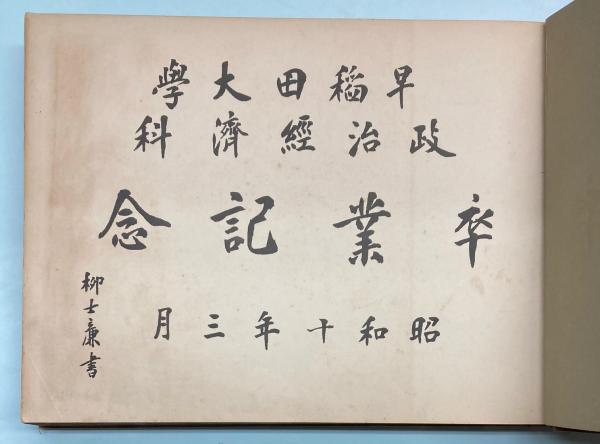 早稲田大學
政治經濟科
卒業記念
昭和十年三月
柳士廉書